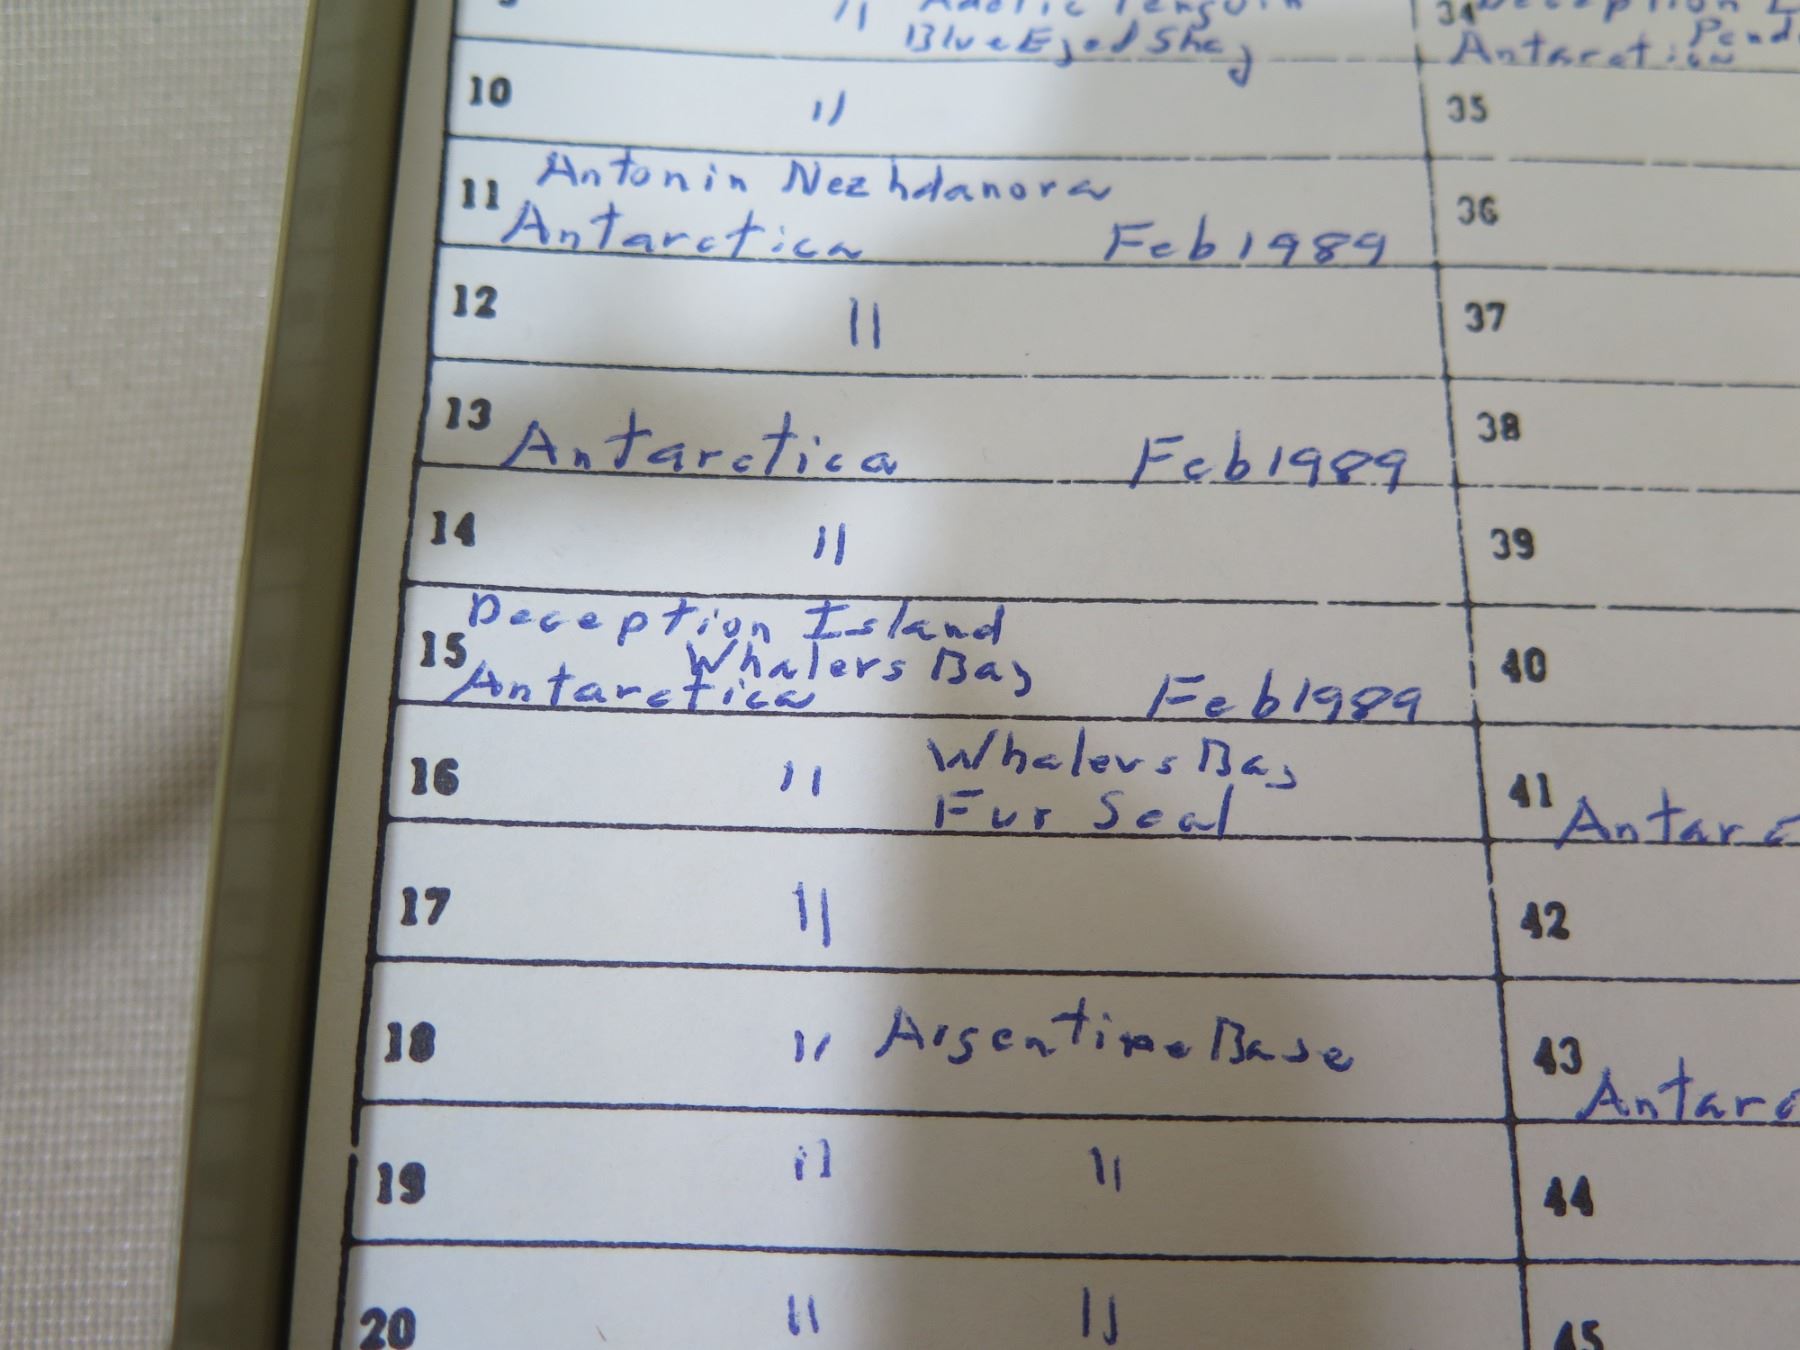 〃 Adelie Penguin
Blue Eyed Shag
10 〃
Antonin Nezhdanova
11 Antarctica Feb 1989
12 〃
13 Antarctica Feb 1989
14 〃
Deception Island
15 Whalers Bay
Antarctica Feb 1989
16 〃 Whalers Bay
Fur Seal
17 〃
18 〃 Argentine Base
19 〃 〃
20 〃 〃
34 Deception
Antarctica
35
36
37
38
39
40
41 Antarc
42
43 Antarc
44
45